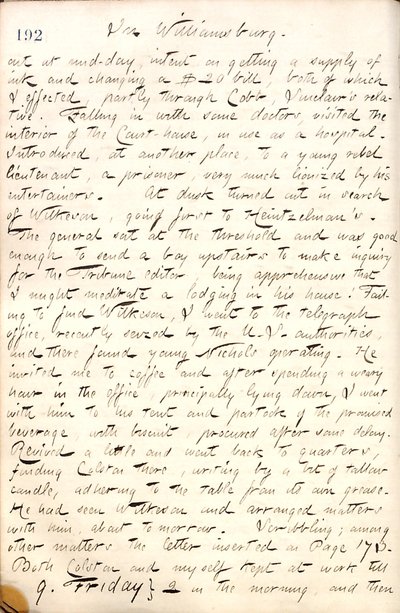 192
In Williamsburg.
out at mid-day, intent on getting a supply of
ink and changing a $20 bill, both of which
I effected, partly through Cobb, Sinclair's rela-
tive. Falling in with some doctors, visited the
interior of the Court-house, in use as a hospital.
Introduced, at another place, to a young rebel
lieutenant, a prisoner, very much lionized by his
entertainers. At dusk turned out in search
of Wilkeson, going first to Heintzelman's.
The general sat at the threshold and was good
enough to send a boy upstairs to make inquiry
for the Tribune editor, being apprehensive that
I might meditate a lodging in his house! Fail-
ing to find Wilkeson, I went to the telegraph
office, recently seized by the U.S. authorities,
and there found young Nichols operating. He
invited me to coffee and after spending a weary
hour in the office, principally lying down, I went
with him to his tent and partook of the promised
beverage, with biscuit, procured after some delay.
Revived a little and went back to quarters,
finding Colston there, writing by a bit of tallow
candle, adhering to the table from its own grease.
He had seen Wilkeson and arranged matters
with him, about to-morrow. Scribbling; among
other matters the letter inserted on Page 175.
Both Colston and myself kept at work till
9. Friday} 2 in the morning, and then